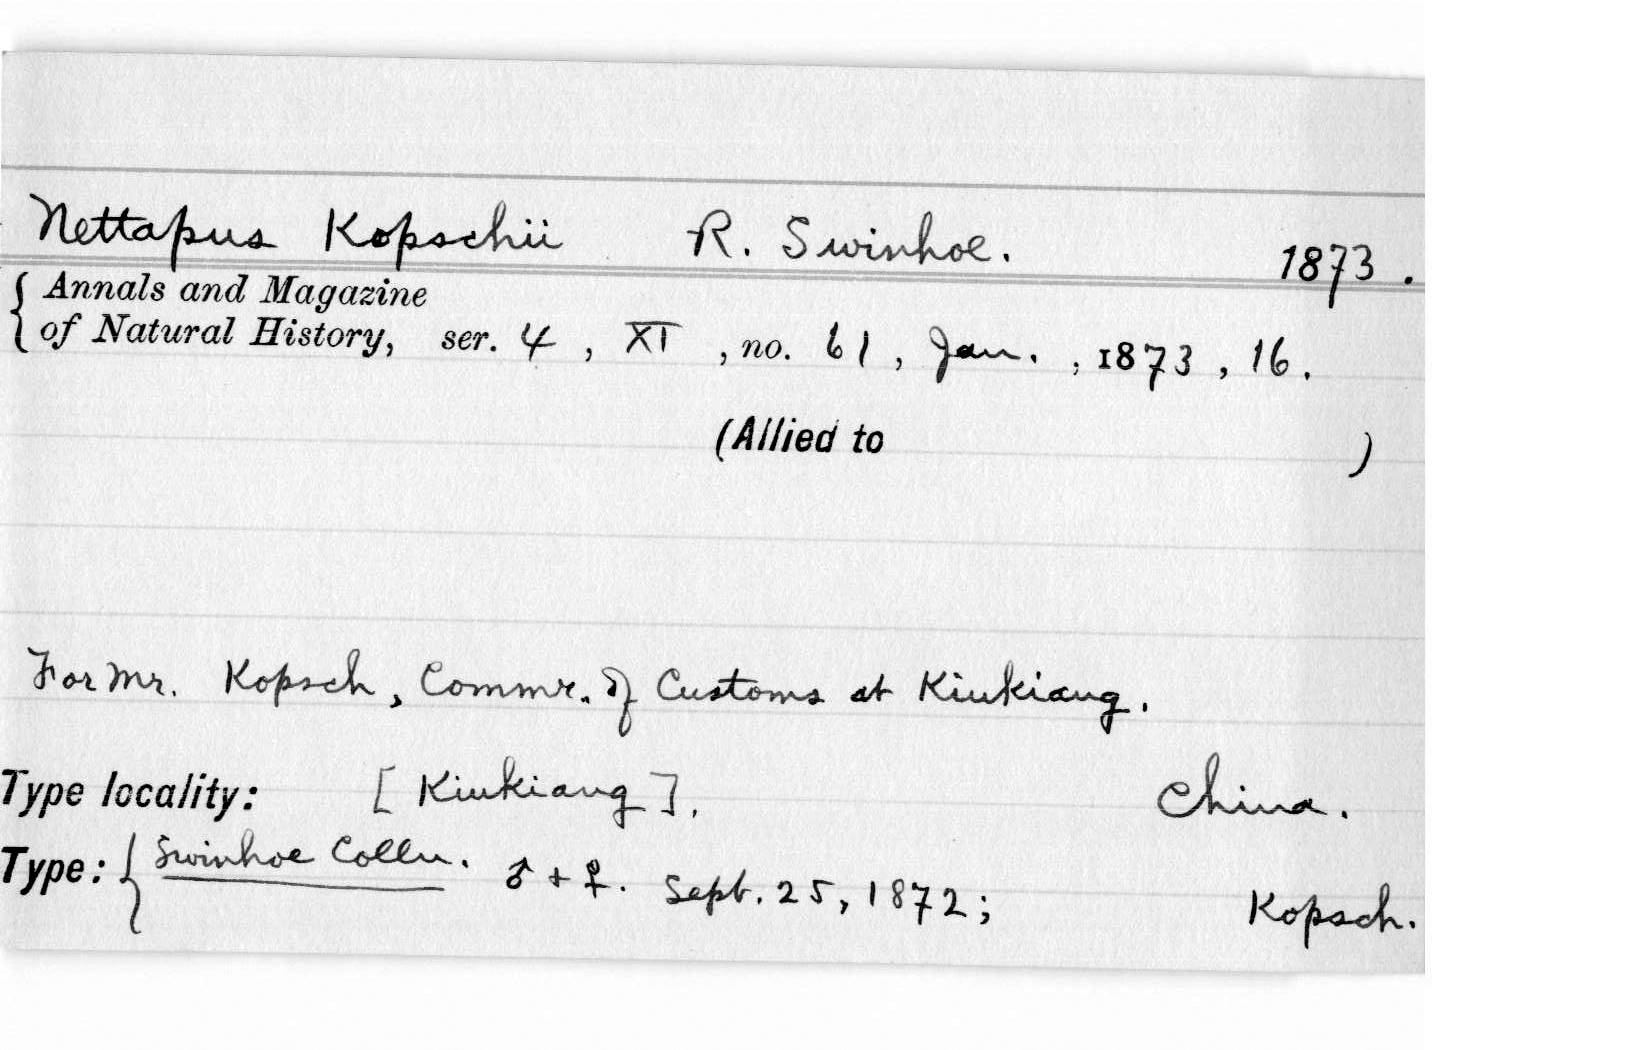 Nettapus Kopschii R. Swinhoe. 1873.
{ Annals and Magazine
of Natural History, ser. 4, XI, no. 61, Jan., 1873, 16.
(Allied to )
For Mr. Kopsch, Commr. of Customs at Kiukiang.
Type locality: [Kiukiang]. China.
Type: { Swinhoe Colln. ♂ + ♀. Sept. 25, 1872; Kopsch.